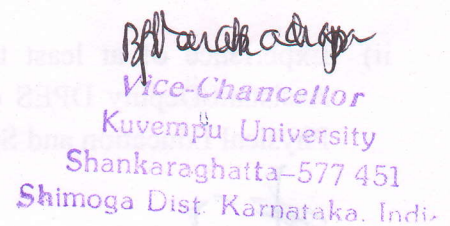 Vice-Chancellor
Kuvempu University
Shankaraghatta-577 451
Shimoga Dist. Karnataka. India